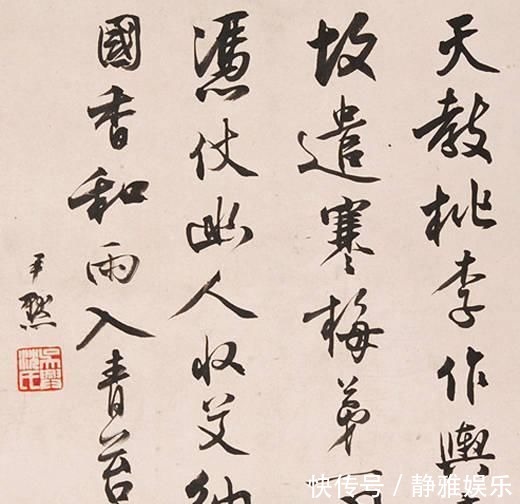 天教桃李作輿
故遣寒梅第一
憑仗幽人收艾納
國香和雨入青苔
尹默
吳興沈氏
快传号 / 静雅娱乐